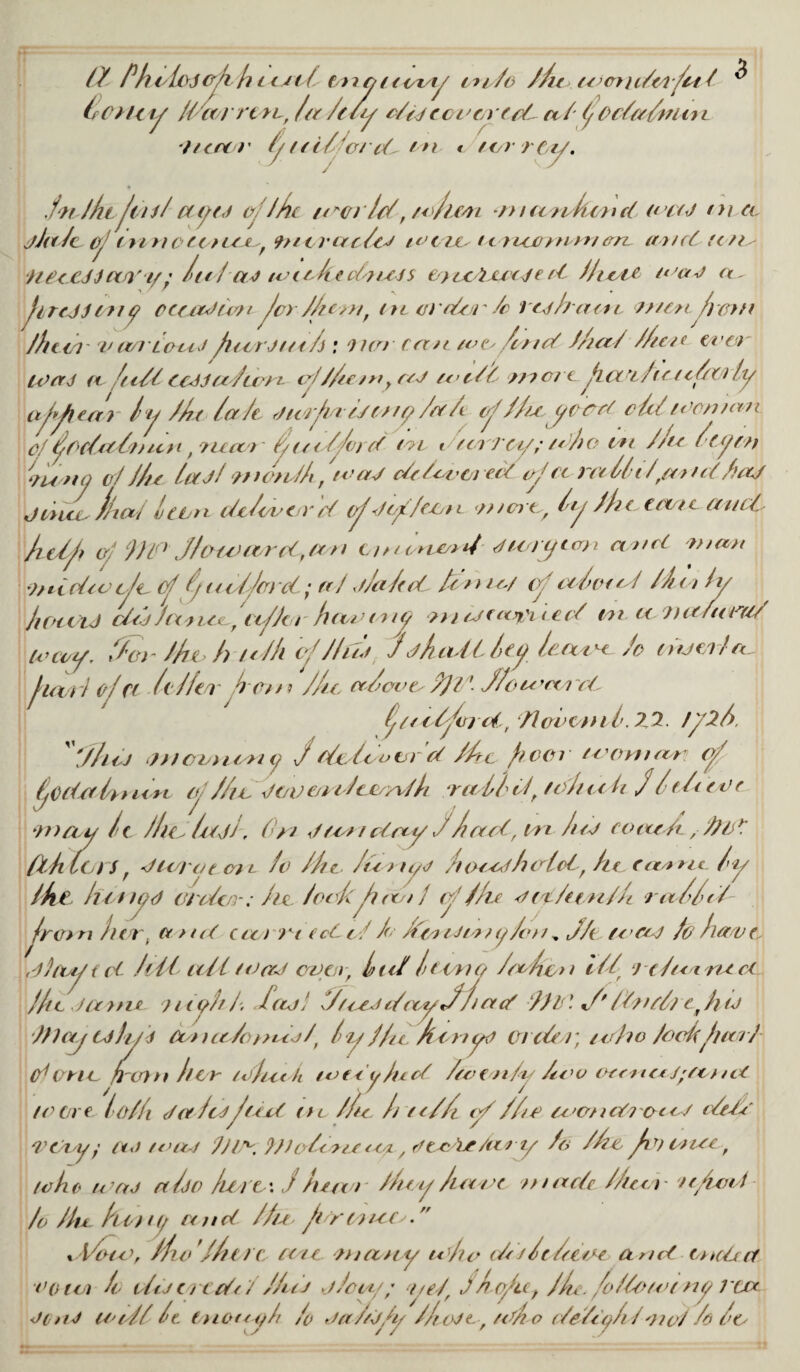 3
A Philosophical enquiry into the wonderful
Coney Warren, lately discovered at Godalmin
near Guilford in Surrey.
In the first ages of the world, when mankind was in a
state of innocence, miracles were uncommon and un-
necessary; but as wickedness encreased there was a
pressing occasion for them, in order to restrain men from
their various pursuits: nor can we find that there ever
was a full cessation of them, as will more particularly
appear by the late surprising fate of the good old woman
of Godalmin, near Guilford in Surrey; who in the begin
ning of the last month, was delivered of a rabbit, and has
since that been deliver'd of sixteen more, by the care and
help of Mr Howard, an eminent surgeon and man
midwife of Guilford; at stated times of about thirty
hours distance, after having miscarried in a natural
way. For the truth of this I shall beg leave to insert a
part of a letter from the above Mr. Howard
Guilford, Novemb. 22. 1726.
"This morning I deliver'd the poor woman of
Godalmin of the seventeenth rabbit, which I believe
may be the last. On sunday I had, in his coach, Mr.
Ahlers, surgeon to the kings houshold, he came by
the kings order: he took part of the sixteenth rabbit
from her, and carried it to Kensington. He was to have
stayed till all was over, but being taken ill, returned
the same night. Last Tuesday I had Mr. St Andre, his
Majesty's anatomist, by the kings order; who took part
of one from her which weighed twenty two ounces; and
were both satisfied in the truth of the wondrous deli-
very; as was Mr. Molineux, secretary to the prince,
who was also here: I hear they have made their report
to the king and the prince."
Now, tho' there are many who disbelieve and endea
vour to discredit this story; yet, I hope, the following rea
sons will be enough to satisfy those, who delight not to be